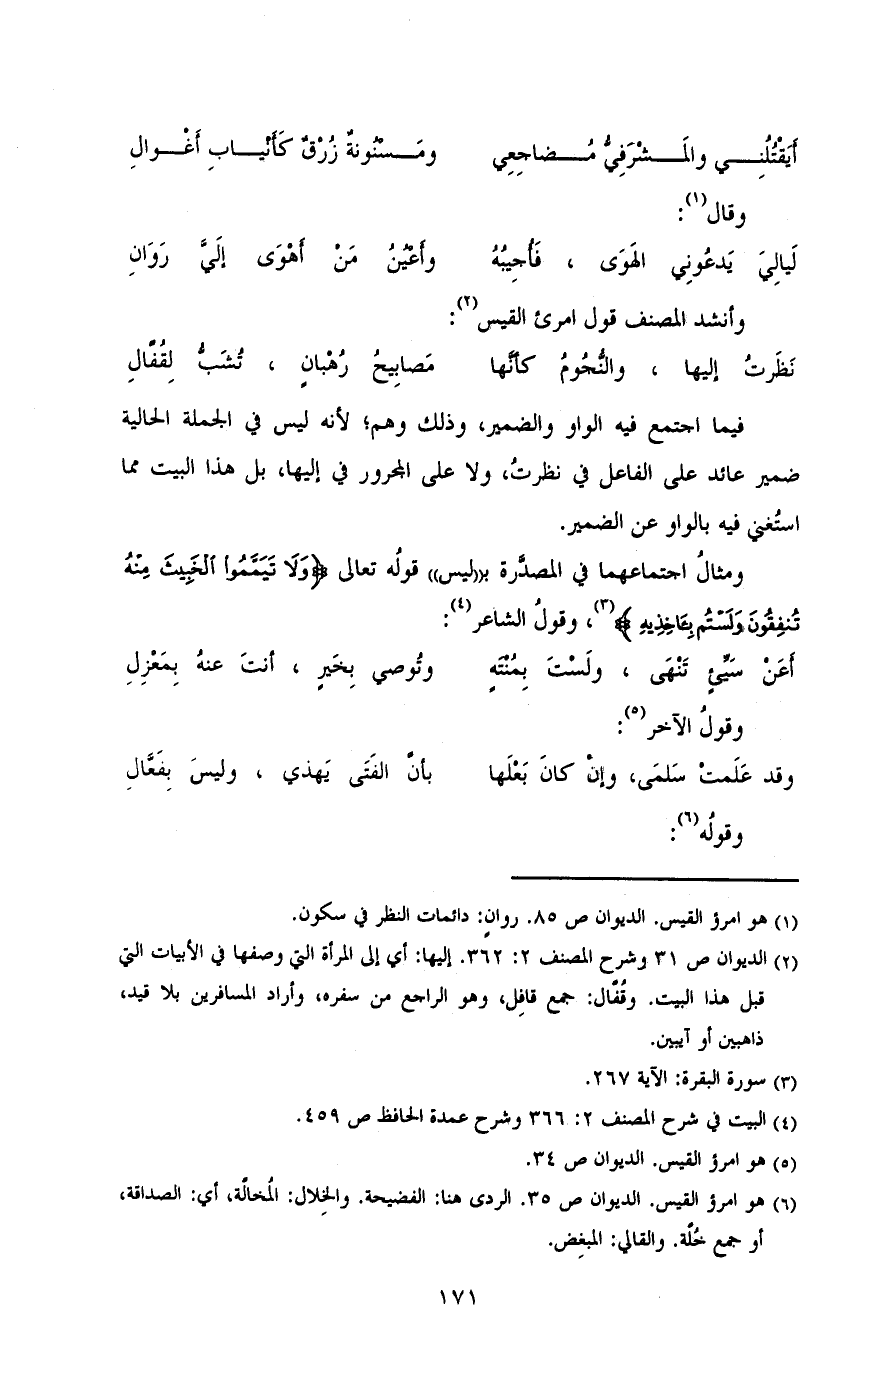 أَيَقْتُلُنِــــي والمَــــشْرَفِيُّ مُــــضاجِعِي ومَــــسْنُونةٌ زُرْقٌ كَأَنْيــــابِ أَغْــــوالِ
وقال(١):
لَيالِيَ يَدعُونِي الهَوَى ، فَأُجِيبُهُ وأَعْيُنُ مَنْ أَهْوَى إلَيَّ رَوَانِ
وأنشد المصنف قول امرئ القيس(٢):
نَظَرتُ إليها ، والنُّجُومُ كأنَّها مَصابِيحُ رُهْبانٍ ، تُشَبُّ لِقُفَّالِ
فيما اجتمع فيه الواو والضمير، وذلك وهم؛ لأنه ليس في الجملة الحالية
ضمير عائد على الفاعل في نظرتُ، ولا على المجرور في إليها، بل هذا البيت مما
استُغني فيه بالواو عن الضمير.
ومثالُ اجتماعهما في المصدَّرة بـ((ليس)) قولُه تعالى ﴿وَلَا تَيَمَّمُوا۟ ٱلْخَبِيثَ مِنْهُ
تُنفِقُونَ وَلَسْتُم بِـَٔاخِذِيهِ﴾(٣)، وقولُ الشاعر(٤):
أَعَنْ سَيِّئٍ تَنْهَى ، ولَسْتَ بِمُنْتَهٍ وتُوصي بِخَيرٍ ، أنتَ عنهُ بِمَعْزِلِ
وقولُ الآخر(٥):
وقد عَلَمتْ سَلمَى، وإنْ كانَ بَعْلَها بأنَّ الفَتَى يَهذي ، وليسَ بِفَعَّالِ
وقولُه(٦):
(١) هو امرؤ القيس. الديوان ص ٨٥. روانٍ: دائمات النظر في سكون.
(٢) الديوان ص ٣١ وشرح المصنف ٢: ٣٦٢. إليها: أي إلى المرأة التي وصفها في الأبيات التي
قبل هذا البيت. وقُفّال: جمع قافِل، وهو الراجع من سفره، وأراد المسافرين بلا قيد،
ذاهبين أو آيبين.
(٣) سورة البقرة: الآية ٢٦٧.
(٤) البيت في شرح المصنف ٢: ٣٦٦ وشرح عمدة الحافظ ص ٤٥٩.
(٥) هو امرؤ القيس. الديوان ص ٣٤.
(٦) هو امرؤ القيس. الديوان ص ٣٥. الردى هنا: الفضيحة. والخِلال: المُخالّة، أي: الصداقة،
أو جمع خُلّة. والقالي: المبغِض.
١٧١